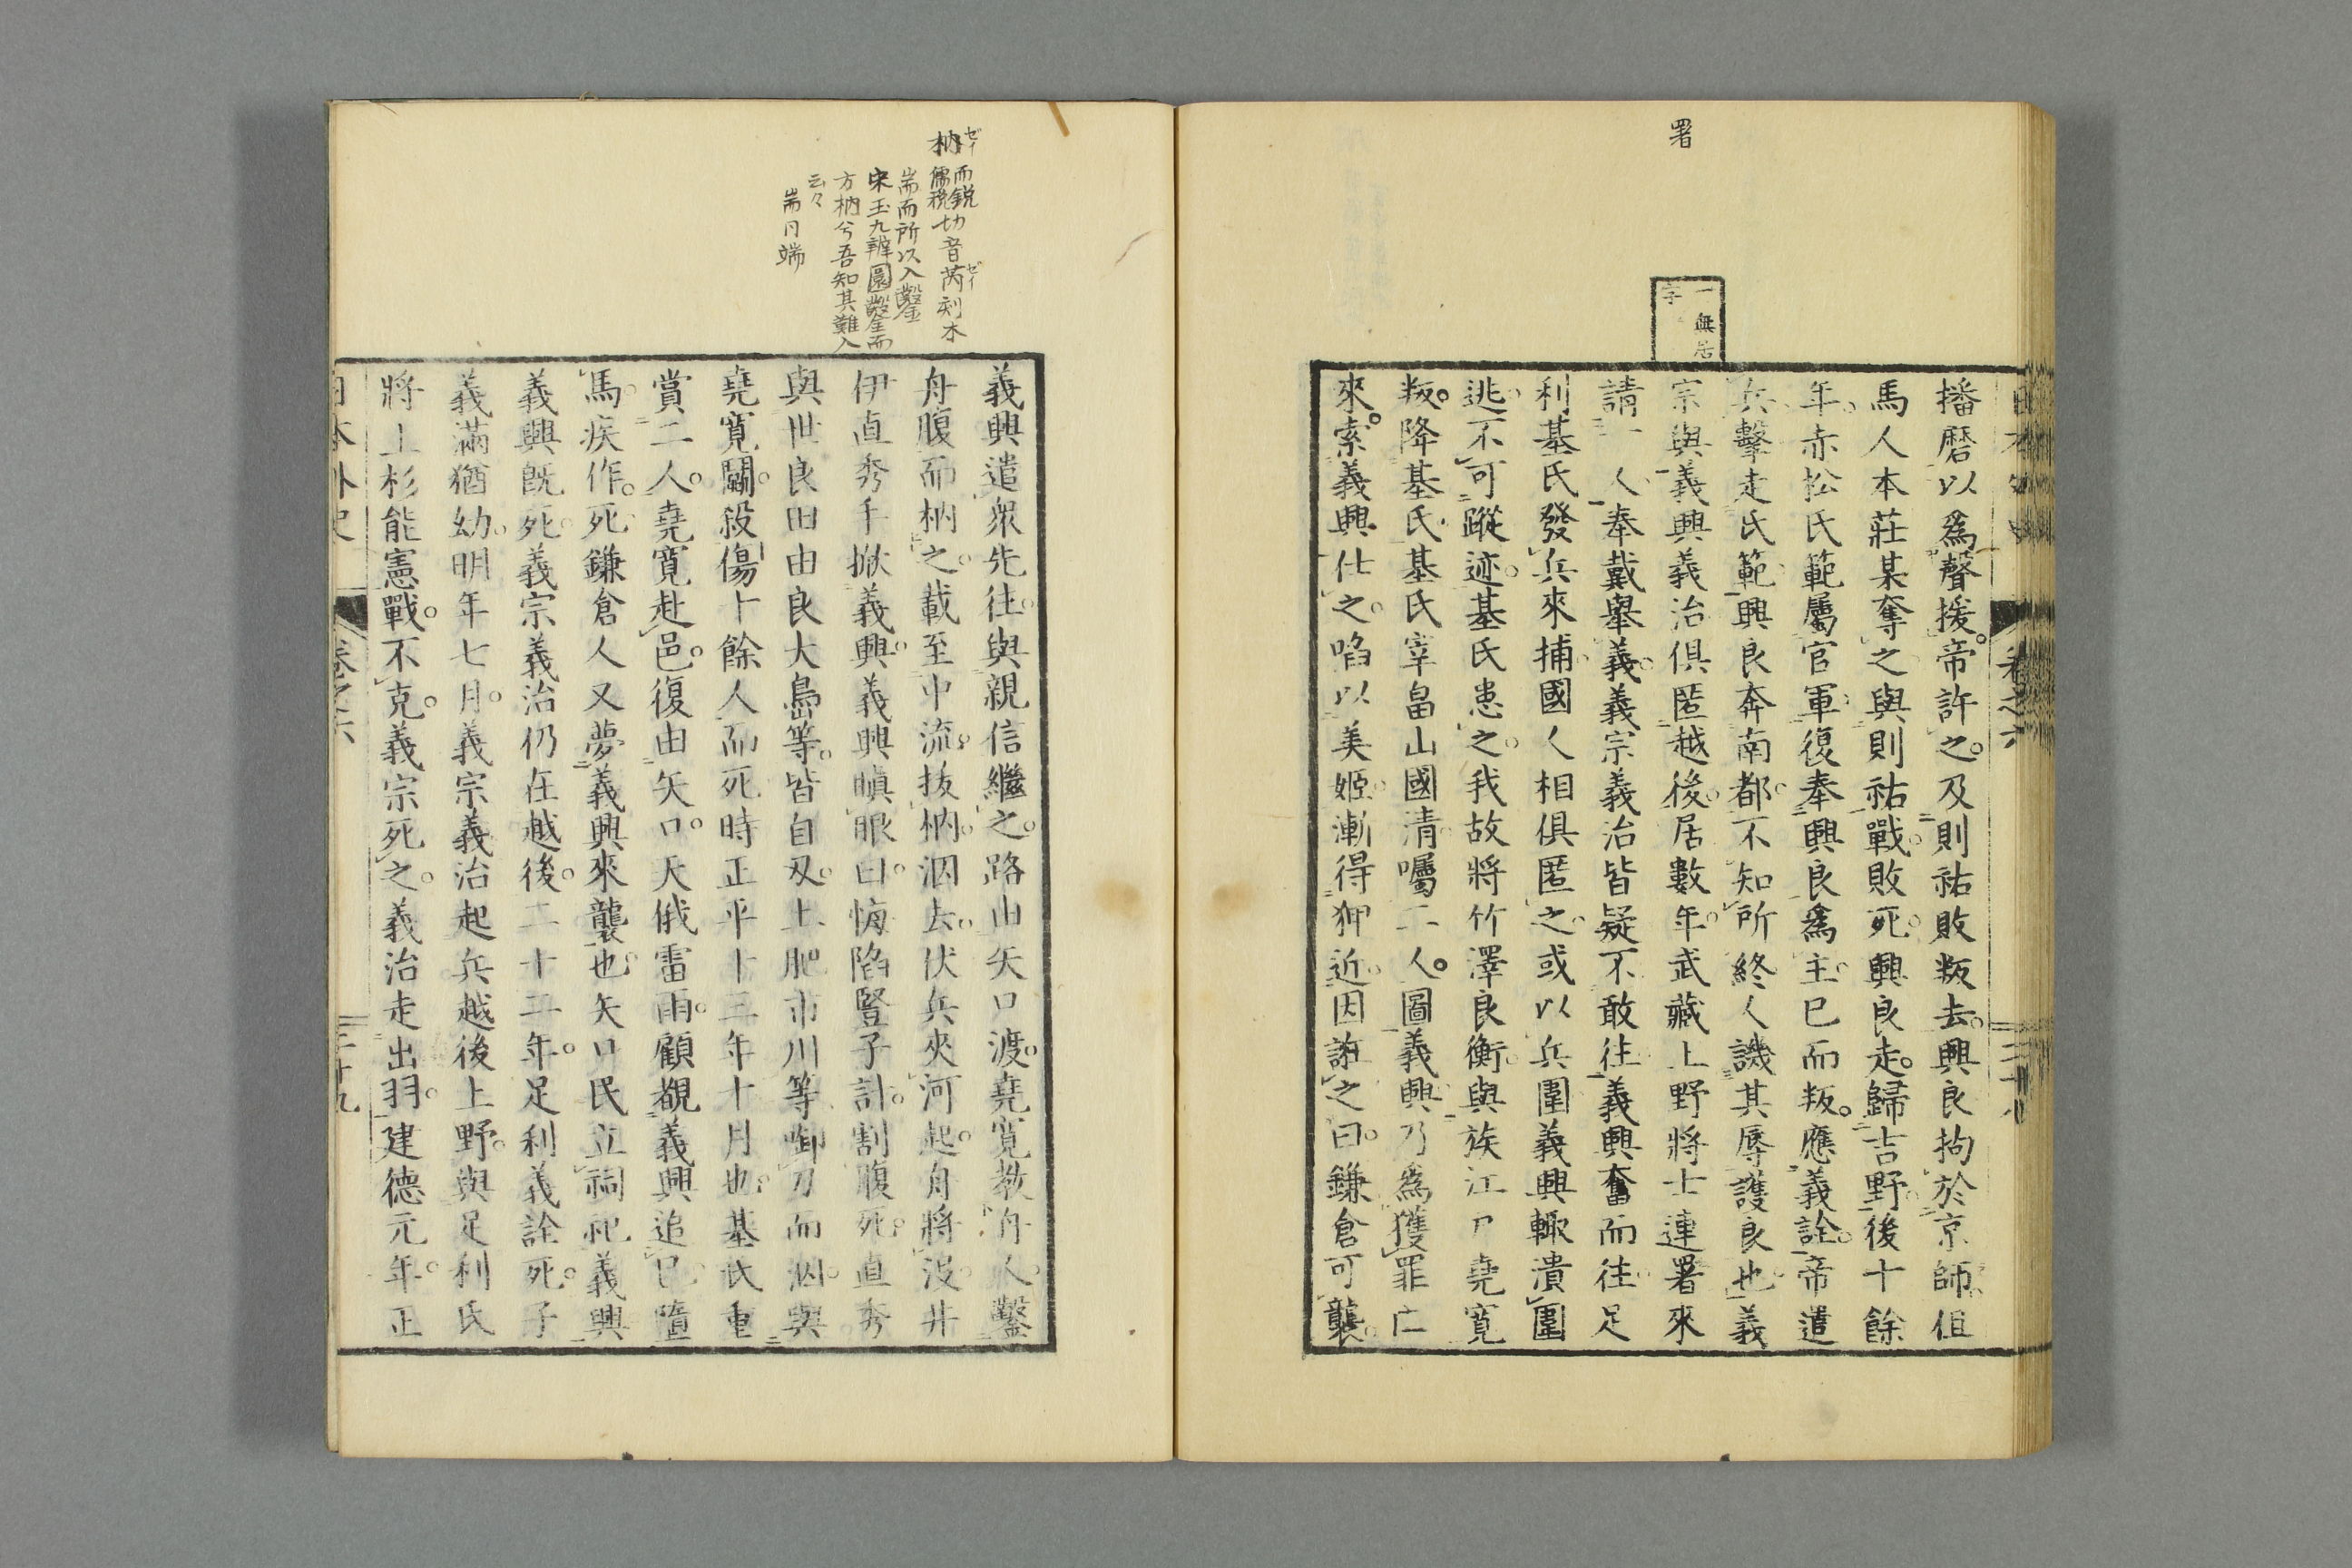 署
一無居
字
播磨以爲聲援帝許之及則祐敗叛去興良拘於京師但
馬人本莊某奪之與則祐戰敗死興良走歸吉野後十餘
年赤松氏範屬官軍復奉興良爲主已而叛應義詮帝遣
兵擊走氏範興良奔南都不知所終人譏其辱護良也義
宗與義興義治俱匿越後居數年武藏上野將士連署來
請一人奉戴舉義義宗義治皆疑不敢往義興奮而往足
利基氏發兵來捕國人相俱匿之或以兵圍義興輙潰圍
逃不可蹤迹基氏患之我故將竹澤良衡與族江戸堯寬
叛降基氏基氏宰畠山國清囑二人圖義興乃爲獲罪亡
來索義興仕之啗以美姬漸得狎近因誑之曰鎌倉可襲
枘 ゼイ 而鋭儒税切音芮 ゼイ 刻木
耑而所以入鑿
宋玉九辯圜鑿而
方枘兮吾知其難入
云々
耑同端
義興遣衆先往與親信繼之路由矢口渡堯寬教舟人鑿
舟腹而枘之載至中流拔枘泅去伏兵夾河起舟將沒井
伊直秀手掀義興義興瞋眼曰悔陷豎子計割腹死直秀
與世良田由良大島等皆自刄土肥市川等啣刀而泅與
堯寬鬭殺傷十餘人而死時正平十三年十月也基氏重
賞二人堯寬赴邑復由矢口天俄雷雨顧覩義興追已墮
馬疾作死鎌倉人又夢義興來襲也矢口民立祠祀義興
義興既死義宗義治仍在越後二十二年足利義詮死子
義滿猶幼明年七月義宗義治起兵越後上野與足利氏
將上杉能憲戰不克義宗死之義治走出羽建德元年正
日本外史 卷之六 二十九